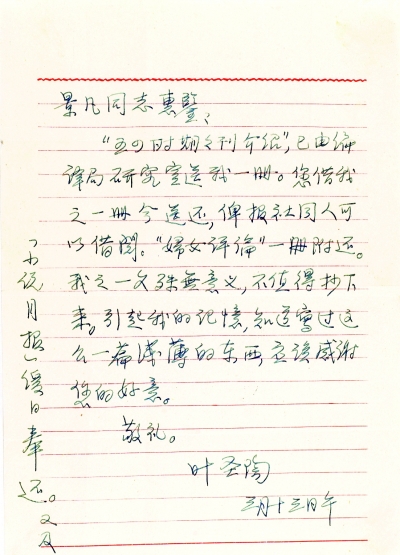 景凡同志惠鉴：
“五四时期期刊介绍”，已由编
译局研究室送我一册。您借我
之一册今送还，俾报社同人可
以借阅。“婦女评论”一册附还。
我之一文殊無意义，不值得抄下
来。引起我的记憶，知道寫过这
么一篇浅薄的东西，应该感谢
您的好意。
敬礼。
叶圣陶
三月十三日午
“小说月报”缓日奉还。又及